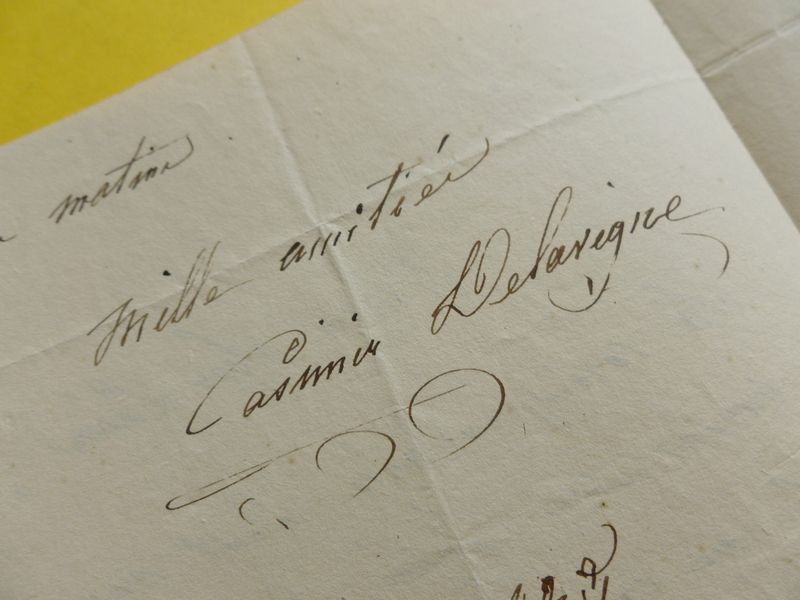 matin
mille amitiés
Casimir Delavigne